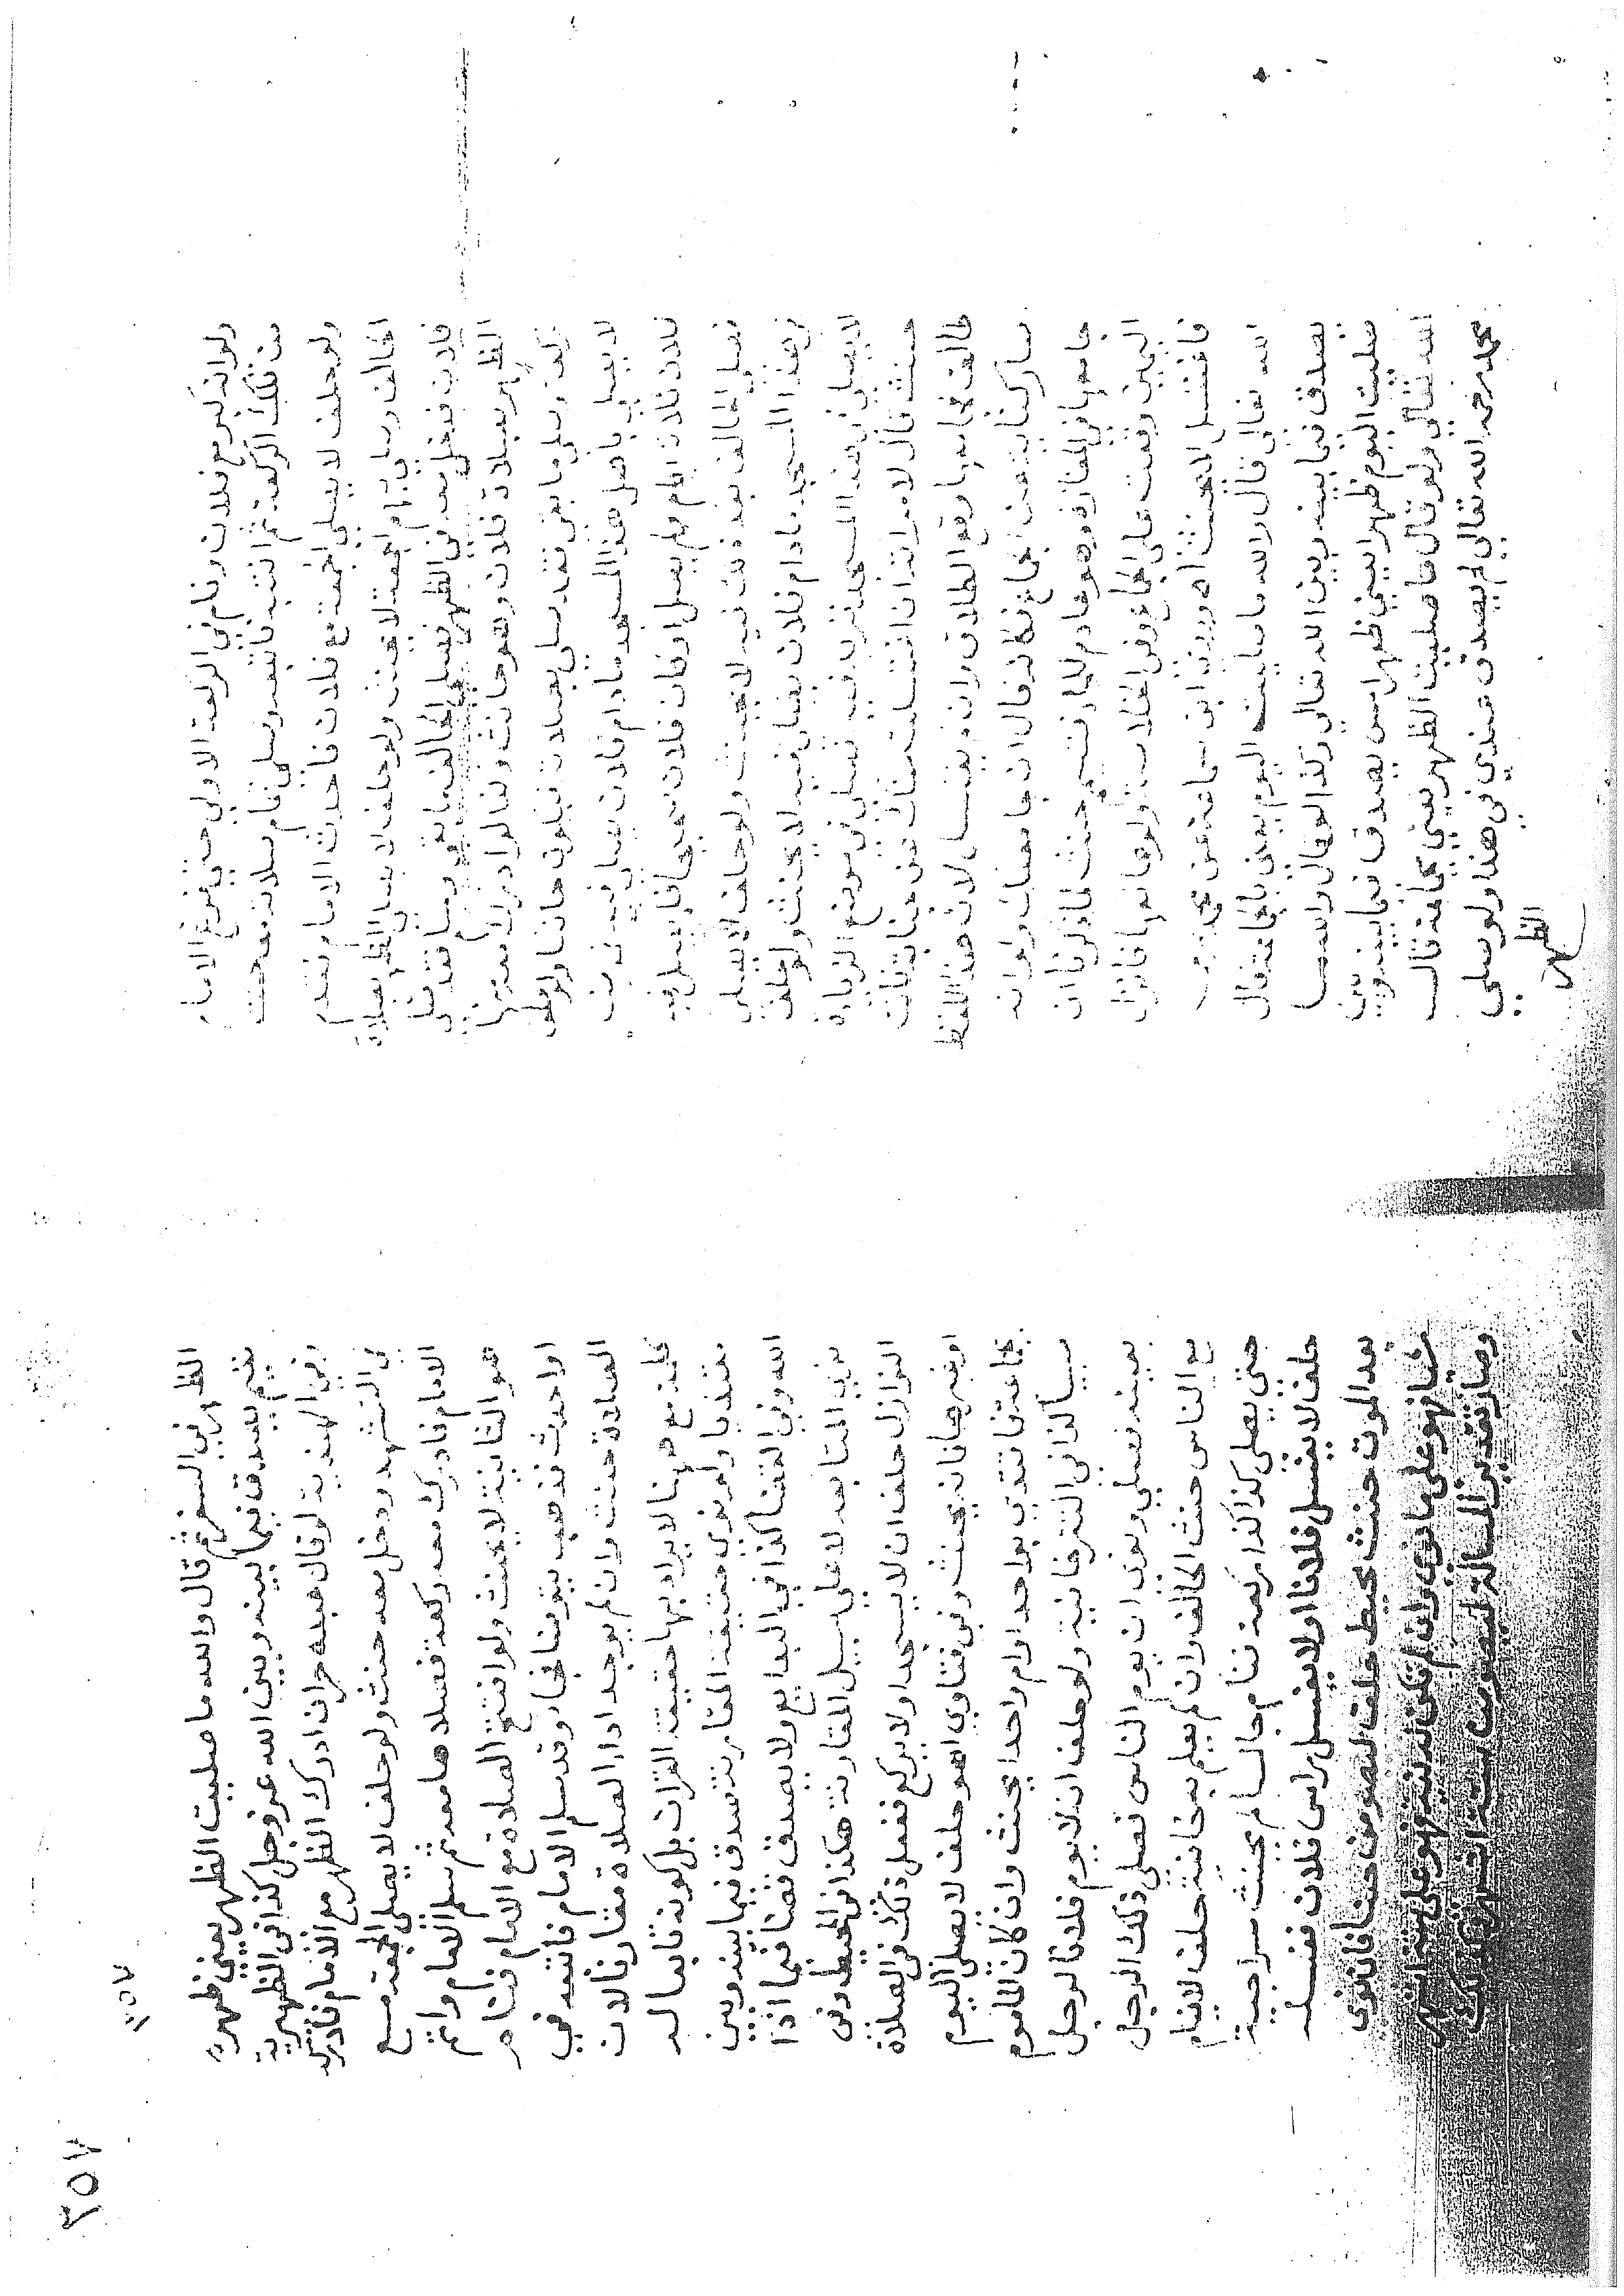 ولو انه كبر مع فلان ونام في الركعة الاولي حتي فرغ الامام
من تلك الركعة ثم انتبه فاتبعه وصلى تمام صلاته معه حنث
ولو حلف لا يصلي الجمعة مع فلان فاحدث الامام فقدم
الحالف وصلى بهم الجمعة لا يحنث ولو حلف لا يصلي الظهر بصلاة
فلان فدخل معه في الظهر
الظهر بصلاة فلان وهو حانث
ركعة وصلى ما بقي فقد صلى بصلاته فيكون حانثا ولو حلف
لا يصلي باهل هذا المسجد مادام فلان يصلي فيه
فلان ثلاثة ايام لم يصل او كان فلان صحيحا فلم يصل فيه
فصلى الحالف بعد ذلك فيه لا يحنث ولو حلف لا يصلي
في هذا المسجد مادام فلان يصلي فيه لا يحنث ولو حلف
لا يصلي في هذا المسجد فزيد فيه فصلى في موضع الزيادة
حنث قال لامراته ان اغتسلت منك من جنابة فانت
طالق فجامعها وقع الطلاق وان لم يغتسل لان هذا اللفظ
صار كناية عن الجماع فكانه قال ان جامعتك ولو انه
جامعها في المفازة وهو عادم للماء فتيمم حنث لما ذكرنا ان
اليمين وقعت على الجماع وفي الخلاصة ولو عانقها فانزل
فاغتسل لا يحنث اه وروى ابن سماعة عن محمد رحمه
الله تعالى قال والله ما صليت اليوم يعني بالجماعة قال
يصدق فيما بينه وبين الله تعالى وكذا لو قال والله ما
صليت اليوم ظهرا يعني ظهر امس يصدق فيما بينه وبين
الله تعالي ولو قال ما صليت الظهر يعني بجماعة قال
محمد رحمه الله تعالي لم يصدق عندي في هذا ولو صلى
الظهر
٢٥٧
٢٥٧
الظهر في السفر ثم قال والله ما صليت الظهر يعني ظهر
مقيم يصدق فيما بينه وبين الله عز وجل كذا في الظهيرية
وفي الهندية لو قال عبده حر ان ادرك الظهر مع الامام فادركه
في التشهد ودخل معه حنث ولو حلف لا يصلي الجمعة مع
الامام فادرك معه ركعة فصلاها معه ثم سلم الامام واتم
هو الثانية لا يحنث ولو افتتح الصلاة مع الامام فنام
او احدث فذهب يتوضا فجاء وقد سلم الامام فاتبعه في
الصلاة حنث وان لم يوجد اداء الصلاة مقارنا لان
كلمة مع ههنا لا يراد بها حقيقة القران بل كونه تابعا له
مقتديا ولو نوى حقيقة المقارنة صدق فيما بينه وبين
الله وفي القضا كذا في البدايع ولا يصدق قضا فيما اذا
نوى المتابعة لا على سبيل المقارنة هكذا في المحيط وفي
النوازل حلف ان لا يسجد او لا يركع ففعل ذلك في الصلاة
او غيرها فانه يحنث وفي فتاوى اهو حلف لا يصلي اليوم
بجماعة فاقتدى بواحد او ام واحدا يحنث وان كان الماموم
صبيا كذا في التترخانية ولو حلف ان لا يوم فلانا لرجل
بعينه فصلي ونوى ان يوم الناس فصلى ذلك الرجل
مع الناس حنث الحالف وان لم يعلم به خانية حلف لا ينام
حتى يصلى كذا كذا ركعة فنام جالسا لم يحنث سراجية
حلف لا يغسل فلانا او لا يغسل راس فلان فغسله
بعد الموت حنث محيط حلف ليصومن حينا فان نوى
شيئا فهو على ما نوى وان لم تكن له نية فهو على ستة اشهر
وصار تقدير المسالة ليصومن ستة اشهر